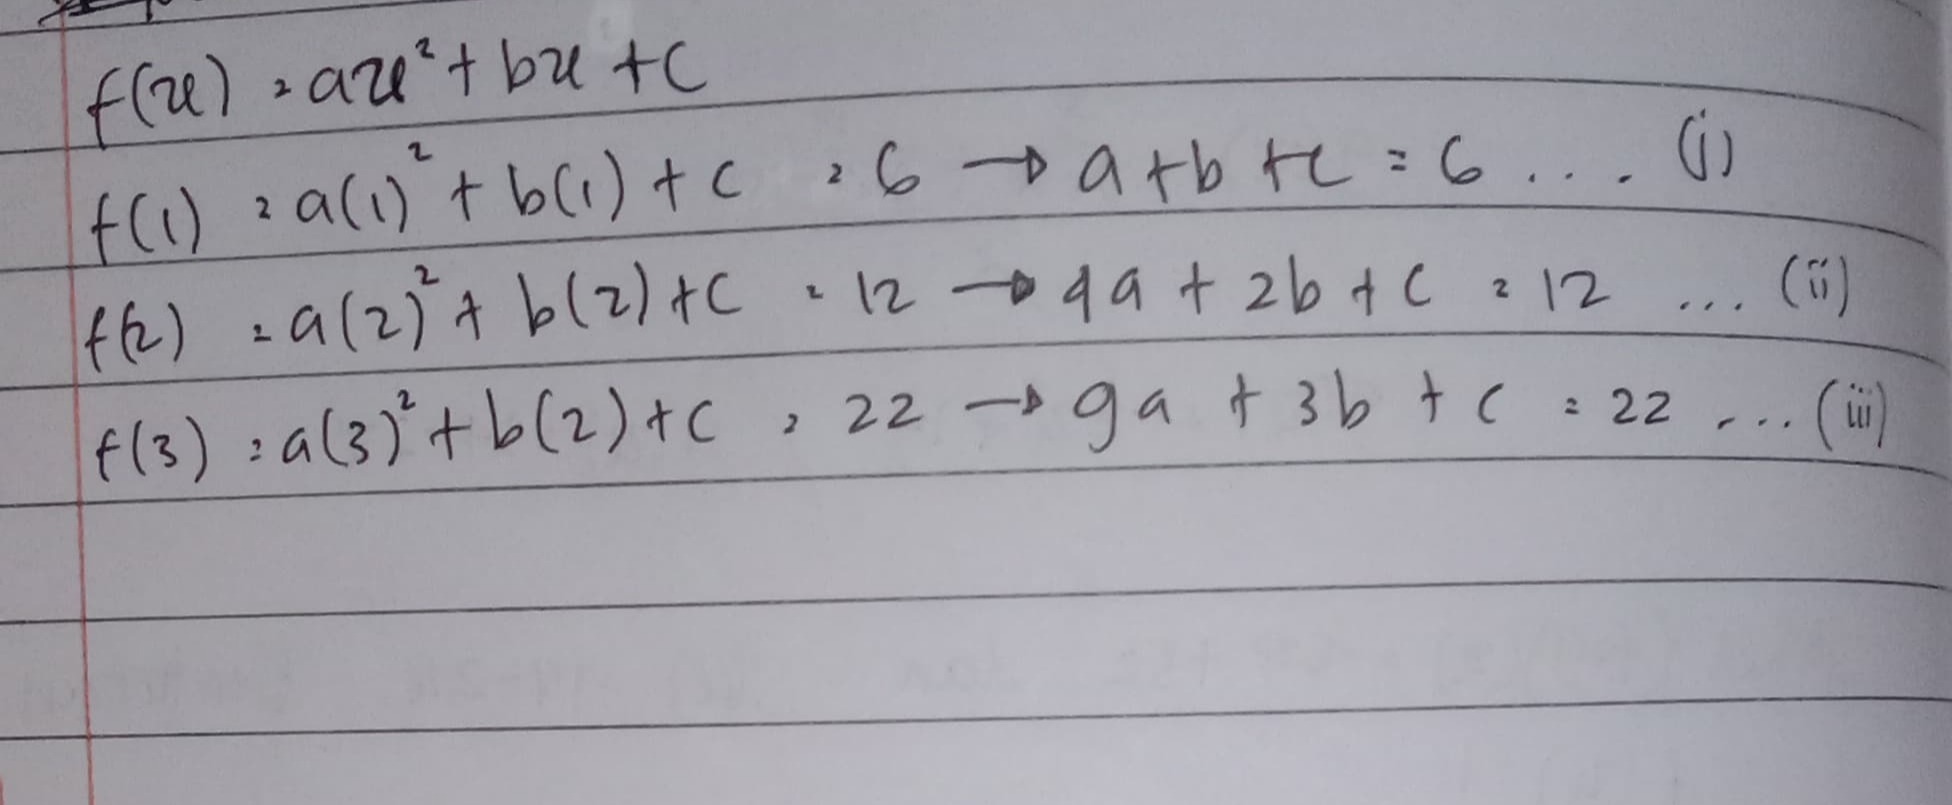 f(x) = ax² + bx + c
f(1) = a(1)² + b(1) + c = 6 → a + b + c = 6 ... (i)
f(2) = a(2)² + b(2) + c = 12 → 4a + 2b + c = 12 ... (ii)
f(3) = a(3)² + b(2) + c = 22 → 9a + 3b + c = 22 ... (iii)